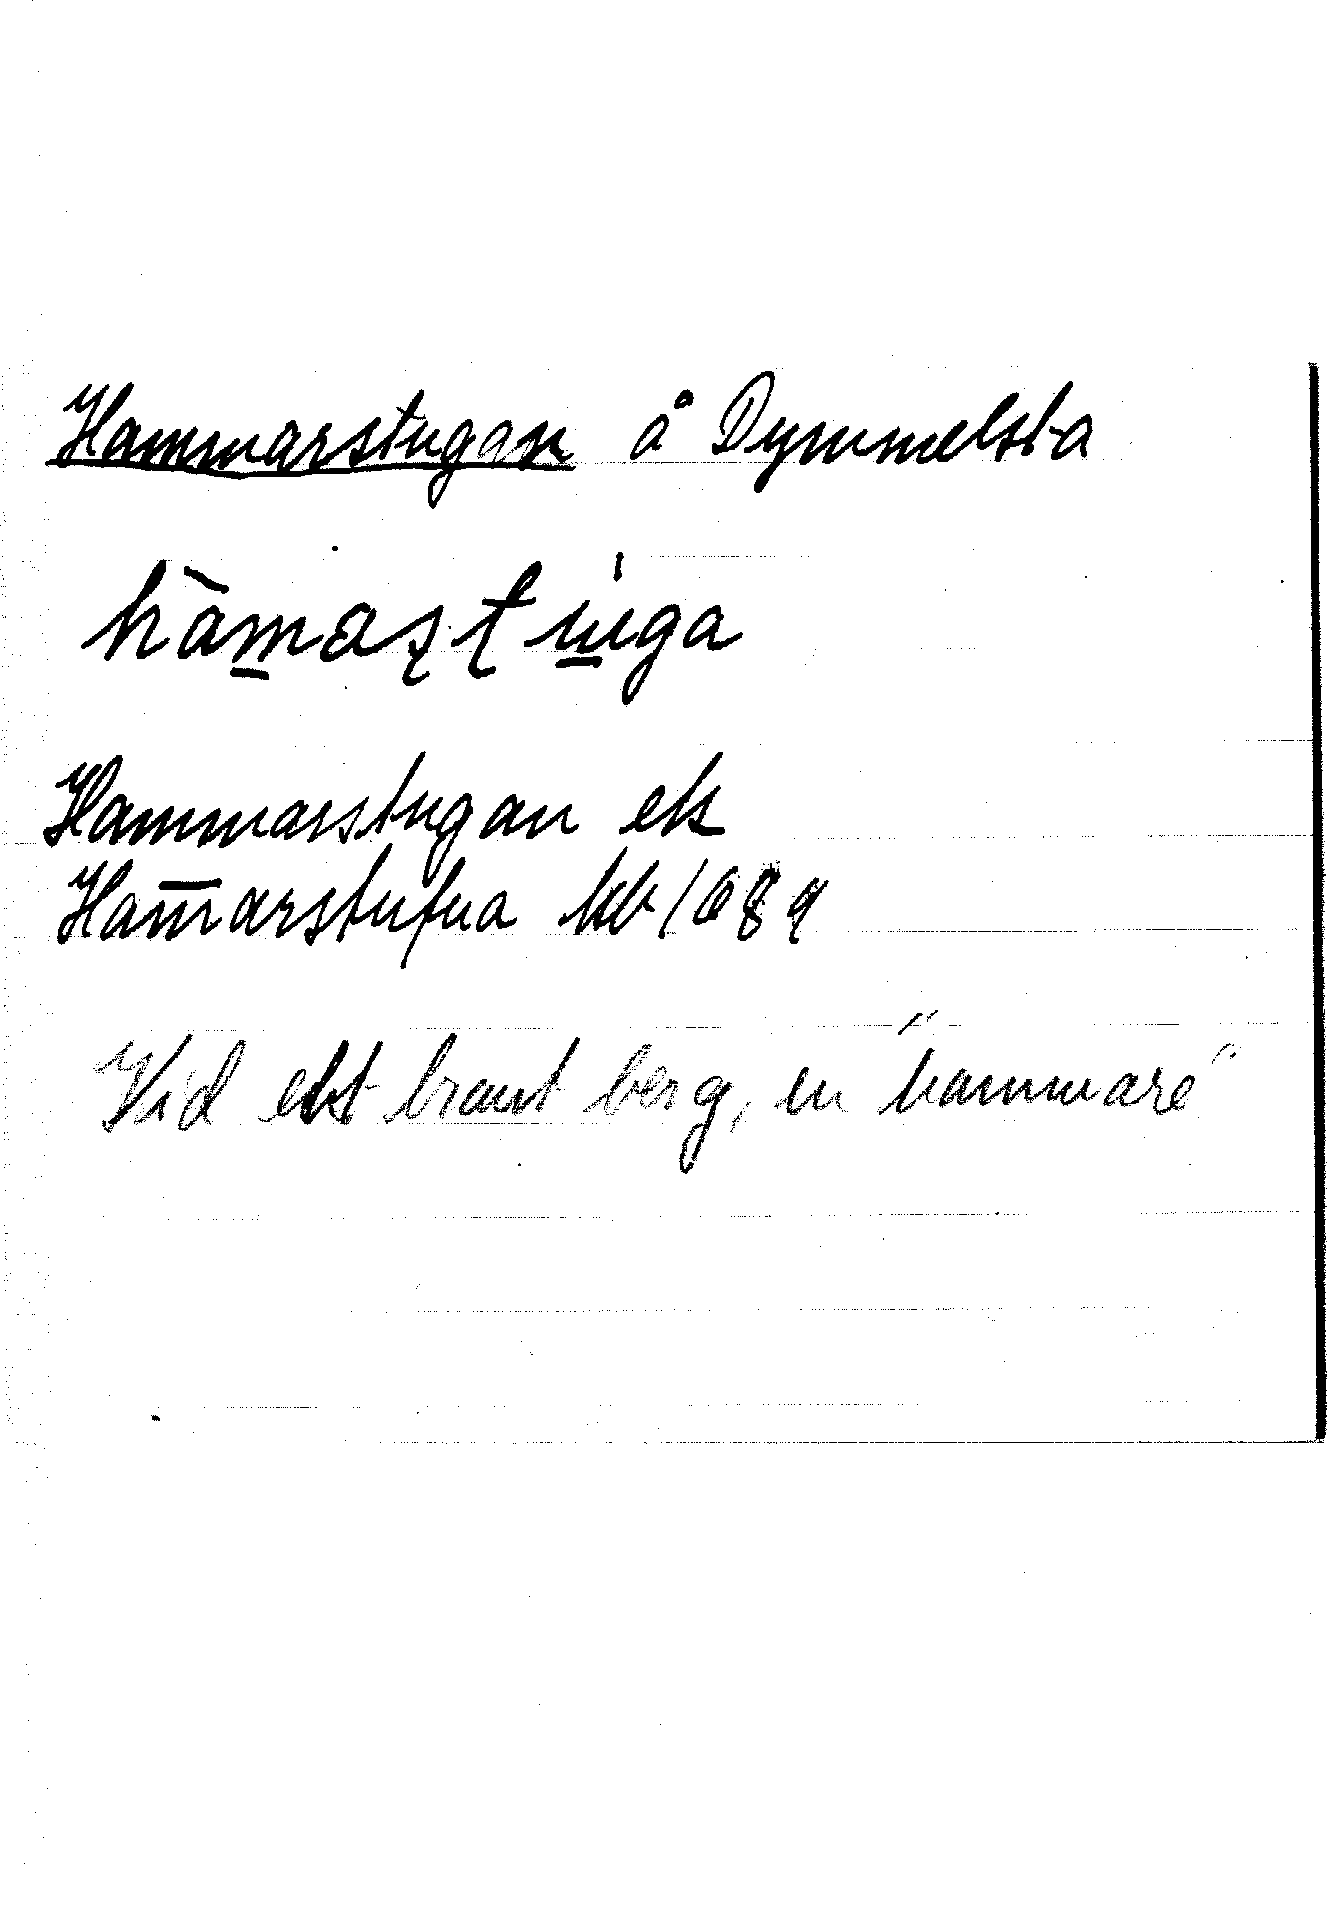 Hammarstugan å Dymmelsta
hàm̲aʂt u̲̇ga
Hammarstugan ek
Ham̅arstufua kb 1689
Vid ett brant berg, en "hammare"